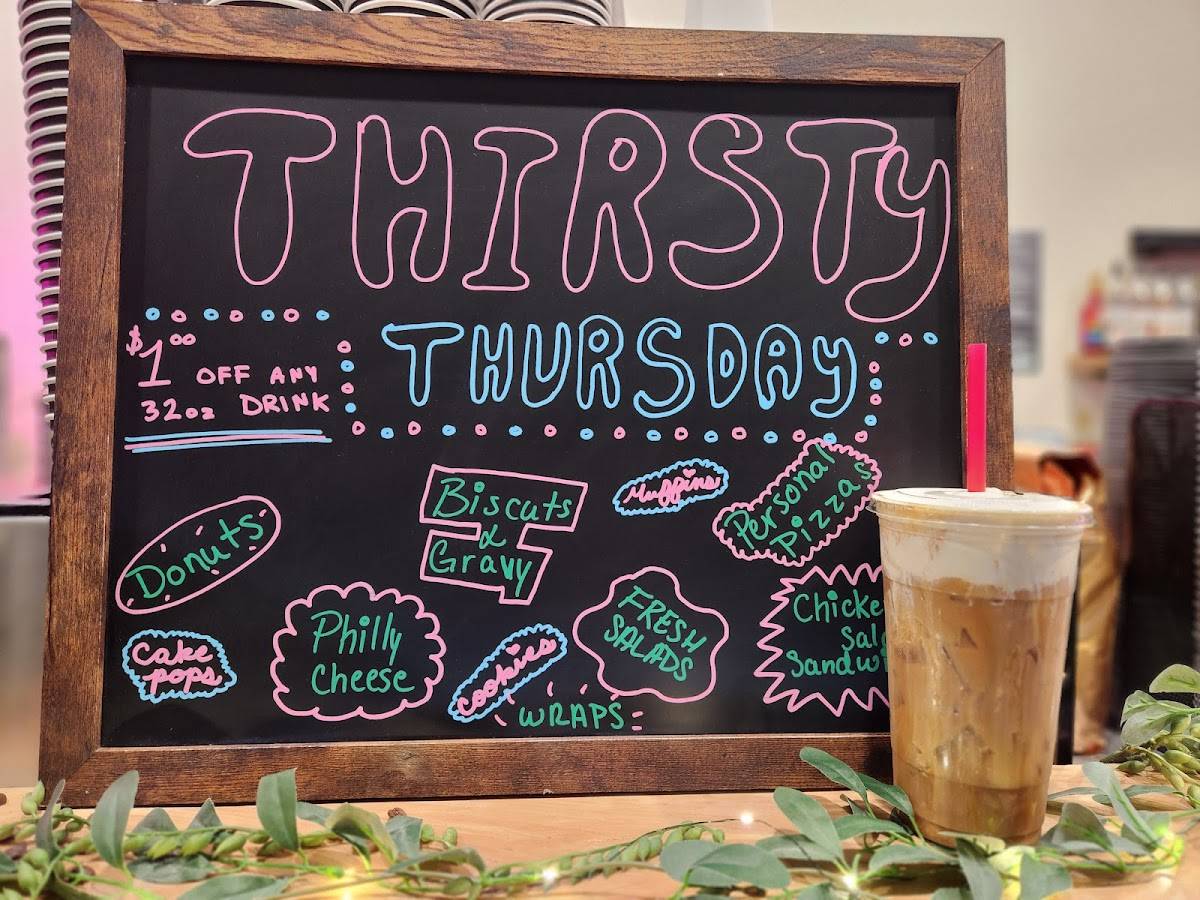 THIRSTY
THURSDAY
$1.00 OFF ANY
32oz DRINK
Donuts
Biscuts
&
Gravy
Muffins
Personal
Pizzas
Cake
pops
Philly
Cheese
cookies
WRAPS
FRESH
SALADS
Chicke
Sal
Sandwi